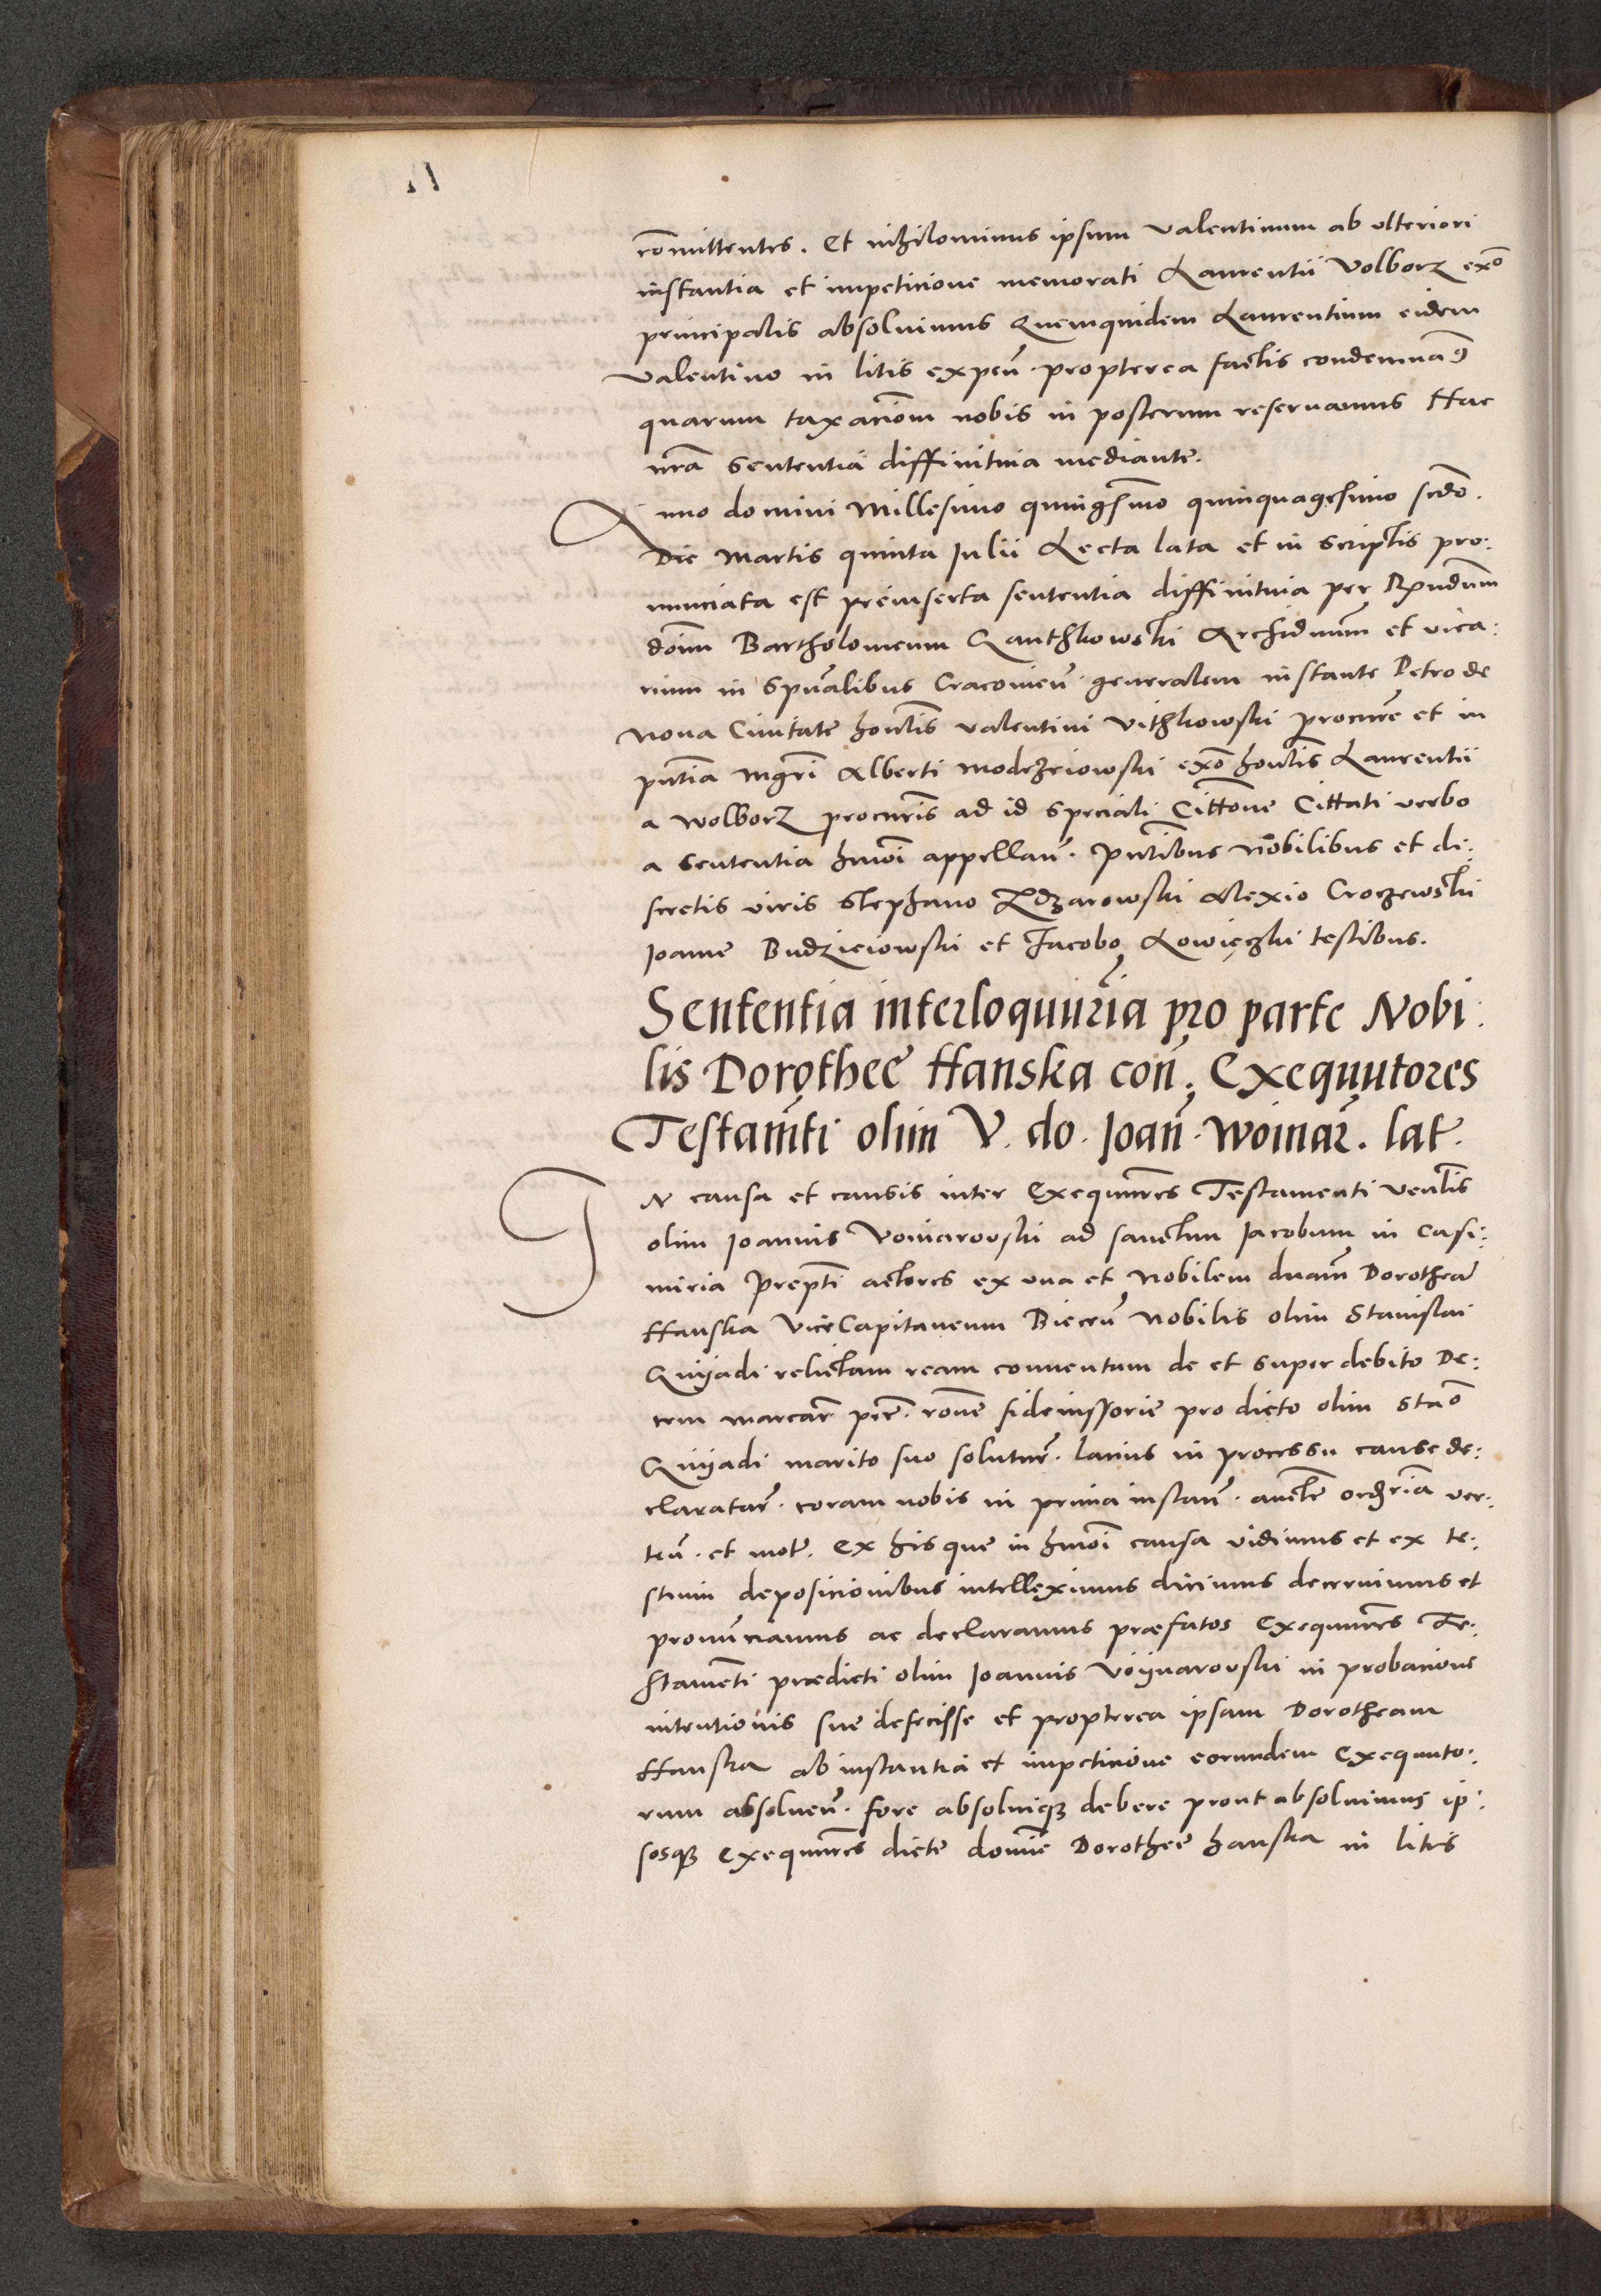 co͞mittentes. Et nihilominus ipsum Valentinum ab ulteriori
instantia et impeticione memorati Laurentii Volborz ex͞o
principalis absoluimus Quemquidem Laurentium eidem
Valentino in litis expen̄. propterea factis condemnaꝰ
quarum taxacio͞m nobis in posterum reseruamus Hac
nr͞a sententia diffinitiua mediante.
Anno domini Millesimo quinges͞imo quinquagesimo sed͞o.
Die Martis quinta Julii Lecta lata et in scriptis pro:
nunciata est preinserta sententia diffinitiua per R͞vndum
do͞nm Bartholomeum Ganthkowski Archidn͞um et vica:
rium in sp͞ualibus Cracouien̄. generalem instante Petro de
Noua Ciuitate hon͞lis Valentini Vithkowski procur͞e et in
pn͞tia mgr͞i Alberti Modrzeiowski ex͞o hon͞lis Laurentii
a Wolborz procur͞is ad id speciali Citto͞ne Cittati verbo
a sententia hmo͞i appellan̄. Pn͞tibus Nobilibus et di:
scretis viris Stephano Alexio Croczewski
Joanne Budzieiowski et Jacobo Lowięczki testibus.
Sententia interloquuto͞ria pro parte Nobi:
lis Dorothee Hanska con̄. Exequutores
Testam͞ti olim V. do. Joan̄. Woinar. lat.
IN causa et causis inter Exequuto͞res Testamenti Ven͞lis
olim Joannis Voinarovski ad sanctum Jacobum in Casi:
miria Prep͞ti actores ex una et Nobilem dn͞am Dorothea͞
Hanska ViceCapitaneum Biecen̄ Nobilis olim Stanislai
Gaijadi relictam ream conuentam de et super debito De:
cem marcar. pec͞. ro͞ne fideiussorie pro dicto olim Sta͞o
Gaijadi marito suo solutar͞. latius in processu cause de:
claratar͞. coram nobis in prima instan̄. auc͞te ord͞ria ver:
ten̄. et mot͞. Ex his que in hmo͞i causa vidimus et ex te:
stium deposicionibus intelleximus dicimus decernimus et
pronunciamus ac declaramus præfatos Exequuto͞res Te:
stame͞nti prædicti olim Joannis Voijnarovski in probacione
intentionis sue defecisse et propterea ipsam Dorotheam
Hanska ab instantia et impeticione eorundem Exequuto:
rum absoluen̄. fore absoluiqꝫ debere prout absoluimus ip:
sosqꝫ Exequuto͞res dicte domi͞ne Dorothee Hanska in litis